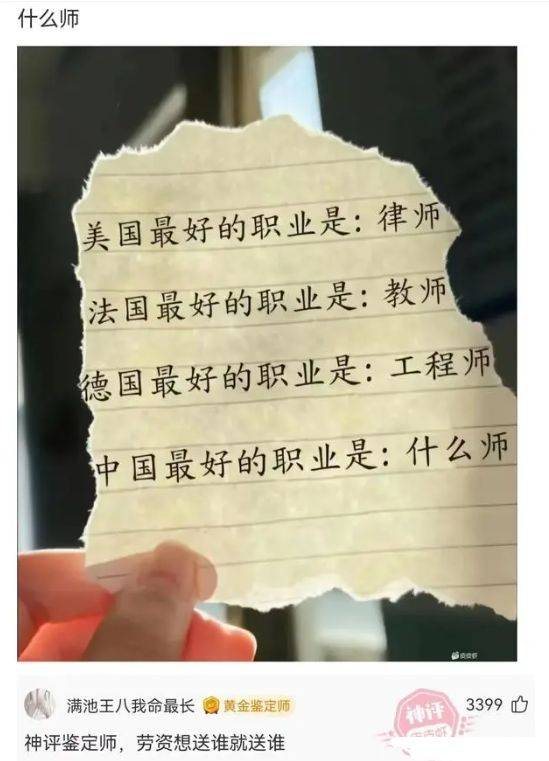 什么师
美国最好的职业是：律师
法国最好的职业是：教师
德国最好的职业是：工程师
中国最好的职业是：什么师
皮皮虾
满池王八我命最长 黄金鉴定师
神评
3399
神评鉴定师，劳资想送谁就送谁